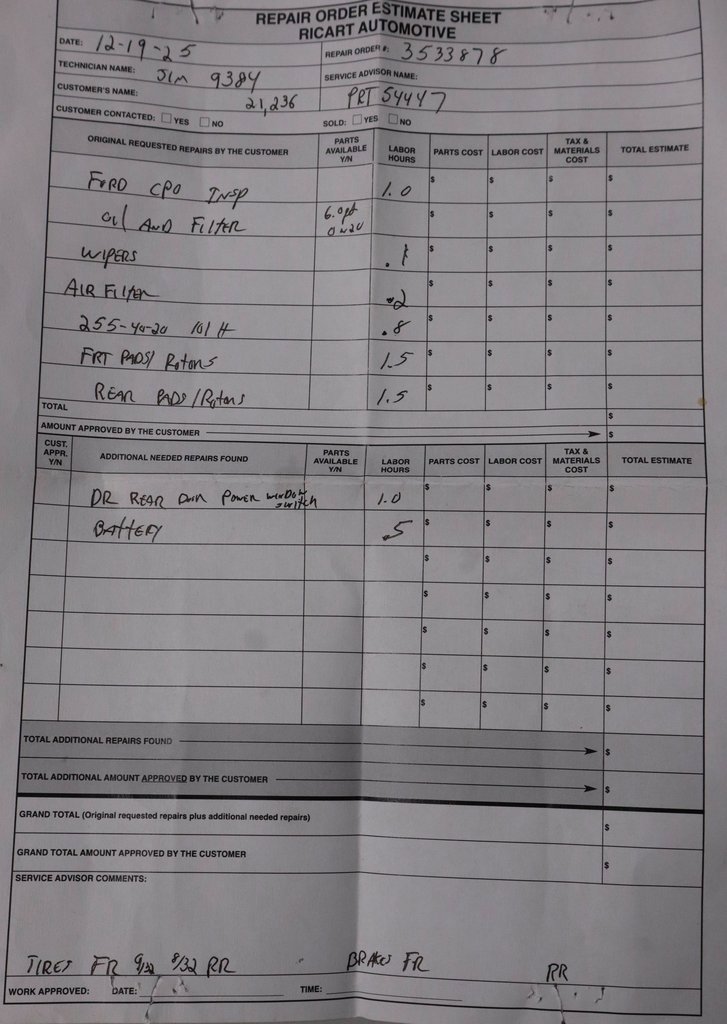 REPAIR ORDER ESTIMATE SHEET
RICART AUTOMOTIVE
DATE: 12-19-25 REPAIR ORDER #: 3533878
TECHNICIAN NAME: JIM 9384 SERVICE ADVISOR NAME:
CUSTOMER'S NAME: 21,236 PRT 54447
CUSTOMER CONTACTED: YES NO SOLD: YES NO
ORIGINAL REQUESTED REPAIRS BY THE CUSTOMER PARTS AVAILABLE Y/N LABOR HOURS PARTS COST LABOR COST TAX & MATERIALS COST TOTAL ESTIMATE
FORD CPO INSP 1.0 $ $ $ $
Oil AND FILTER 6.0qt 0w20 $ $ $ $
WIPERS .1 $ $ $ $
AIR FILTER .2 $ $ $ $
255-40-20 101 H .8 $ $ $ $
FRT PADS/ Rotors 1.5 $ $ $ $
REAR PADS/Rotors 1.5 $ $ $ $
TOTAL $
AMOUNT APPROVED BY THE CUSTOMER $
CUST. APPR. Y/N ADDITIONAL NEEDED REPAIRS FOUND PARTS AVAILABLE Y/N LABOR HOURS PARTS COST LABOR COST TAX & MATERIALS COST TOTAL ESTIMATE
DR REAR Door Power window switch 1.0 $ $ $ $
BATTERY .5 $ $ $ $
$ $ $ $
$ $ $ $
$ $ $ $
$ $ $ $
$ $ $ $
TOTAL ADDITIONAL REPAIRS FOUND $
TOTAL ADDITIONAL AMOUNT APPROVED BY THE CUSTOMER $
GRAND TOTAL (Original requested repairs plus additional needed repairs) $
GRAND TOTAL AMOUNT APPROVED BY THE CUSTOMER $
SERVICE ADVISOR COMMENTS:
TIRES FR 9/32 8/32 RR BRAKES FR RR
WORK APPROVED: DATE: TIME: